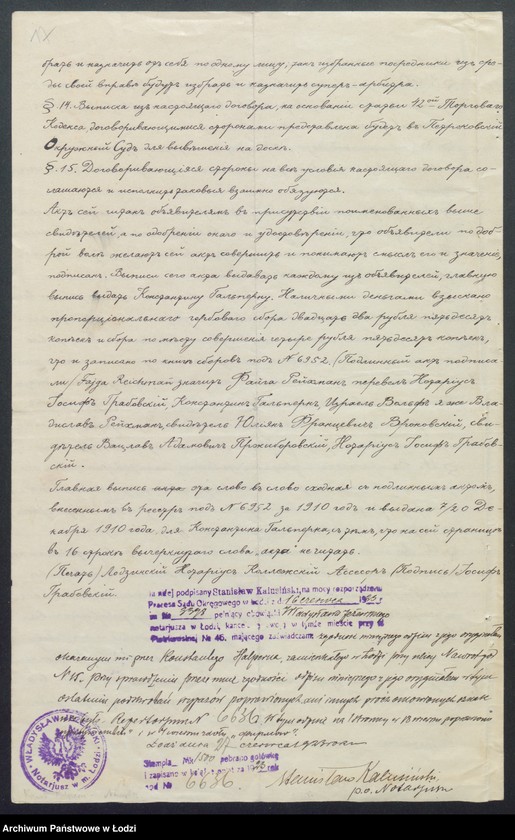 брать и назначить отъ себя по одному лицу, такъ избранные посредники изъ сре-
ды своей вправѣ будутъ избрать и назначить суперъ-арбитра.
§. 14. Выписка изъ настоящаго договора, на основаніи статьи 42ой Торговаго
Кодекса договаривающимися сторонами представлена будетъ въ Петроковскій
Окружный Судъ для вывѣшенія на доскѣ.
§. 15. Договаривающіяся стороны на всѣ условія настоящаго договора со-
глашаются и исполнить таковыя взаимно обязуются.
Актъ сей читанъ объявителямъ въ присутствіи поименованныхъ выше
свидѣтелей, а по одобреніи онаго и удостовѣреніи, что объявители по доб-
рой волѣ желаютъ сей актъ совершить и понимаютъ смыслъ его и значеніе,
подписанъ. Выписи сего акта выдавать каждому изъ объявителей, главную
выпись выдать Константину Гальперну. Наличными деньгами взыскано
пропорціональнаго гербоваго сбора двадцать два рубля пятьдесятъ
копѣекъ и сбора по между совершенія четыре рубля пятьдесятъ копѣекъ,
что и записано по книгѣ сборовъ подъ N 6952. /Подлинный актъ подписа-
ли/ Fajga Reichman значитъ Файга Рейхманъ перевелъ Нотаріусъ
Іосифъ Грабовскій, Константинъ Гальпернъ, Израель Вольфъ я же Вла-
диславъ Рейхманъ, свидѣтель Юліянъ Францевичъ Вронковскій, Сви-
дѣтель Вацлавъ Адамовичъ Пражиборовскій, Нотаріусъ Іосифъ Грабов-
скій.
Главная выпись акта эта слово въ слово сходная съ подлиннымъ актомъ,
внесеннымъ въ реестръ подъ N 6952 за 1910 годъ и выдана 7/20 Де-
кабря 1910 года, для Константина Гальперна, съ тѣмъ, что на сей страницѣ
въ 16 строкѣ вычеркнутаго слова „акта" не читать.
/Печать/ Лодзинскій Нотаріусъ Коллежскій Ассесоръ /Подпись/ Іосифъ
Грабовскій.
Ja niżej podpisany Stanisław Kaluziński, na mocy rozporządzenia
Prezesa Sądu Okręgowego w Łodzi z d. 16 czerwca 1923 r.
za Nr. pełniący obowiązki Władysława
notarjusza w Łodzi, kancelarję swą w tymże mieście przy ul.
Piotrkowskiej Nr. 46, mającego zaświadczam zgodność niniejszego odpisu z jego oryginałem
okazanym mi przez Konstantego Halperna, zamieszkałego w Łodzi przy ulicy Nawrot pod
N 15. Przy sprawdzeniu przeze mnie zgodności odpisu niniejszego z jego oryginałem w tymże
ostatnim podskrobań wyrazów poprawionych ani innych
Repertorjum N 6686
Łódź dnia 27 czerwca 1923 roku
Stempla Mk 1500 pobrano gotówką
i zapisano w księdze pod Nr 6686.
Stanisław Kaluziński
p.o. Notarjusza
WŁADYSŁAW
Notarjusz w m. Łodzi
Archiwum Państwowe w Łodzi